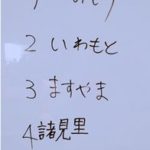 2 いわもと
3 ますやま
4 諸見里